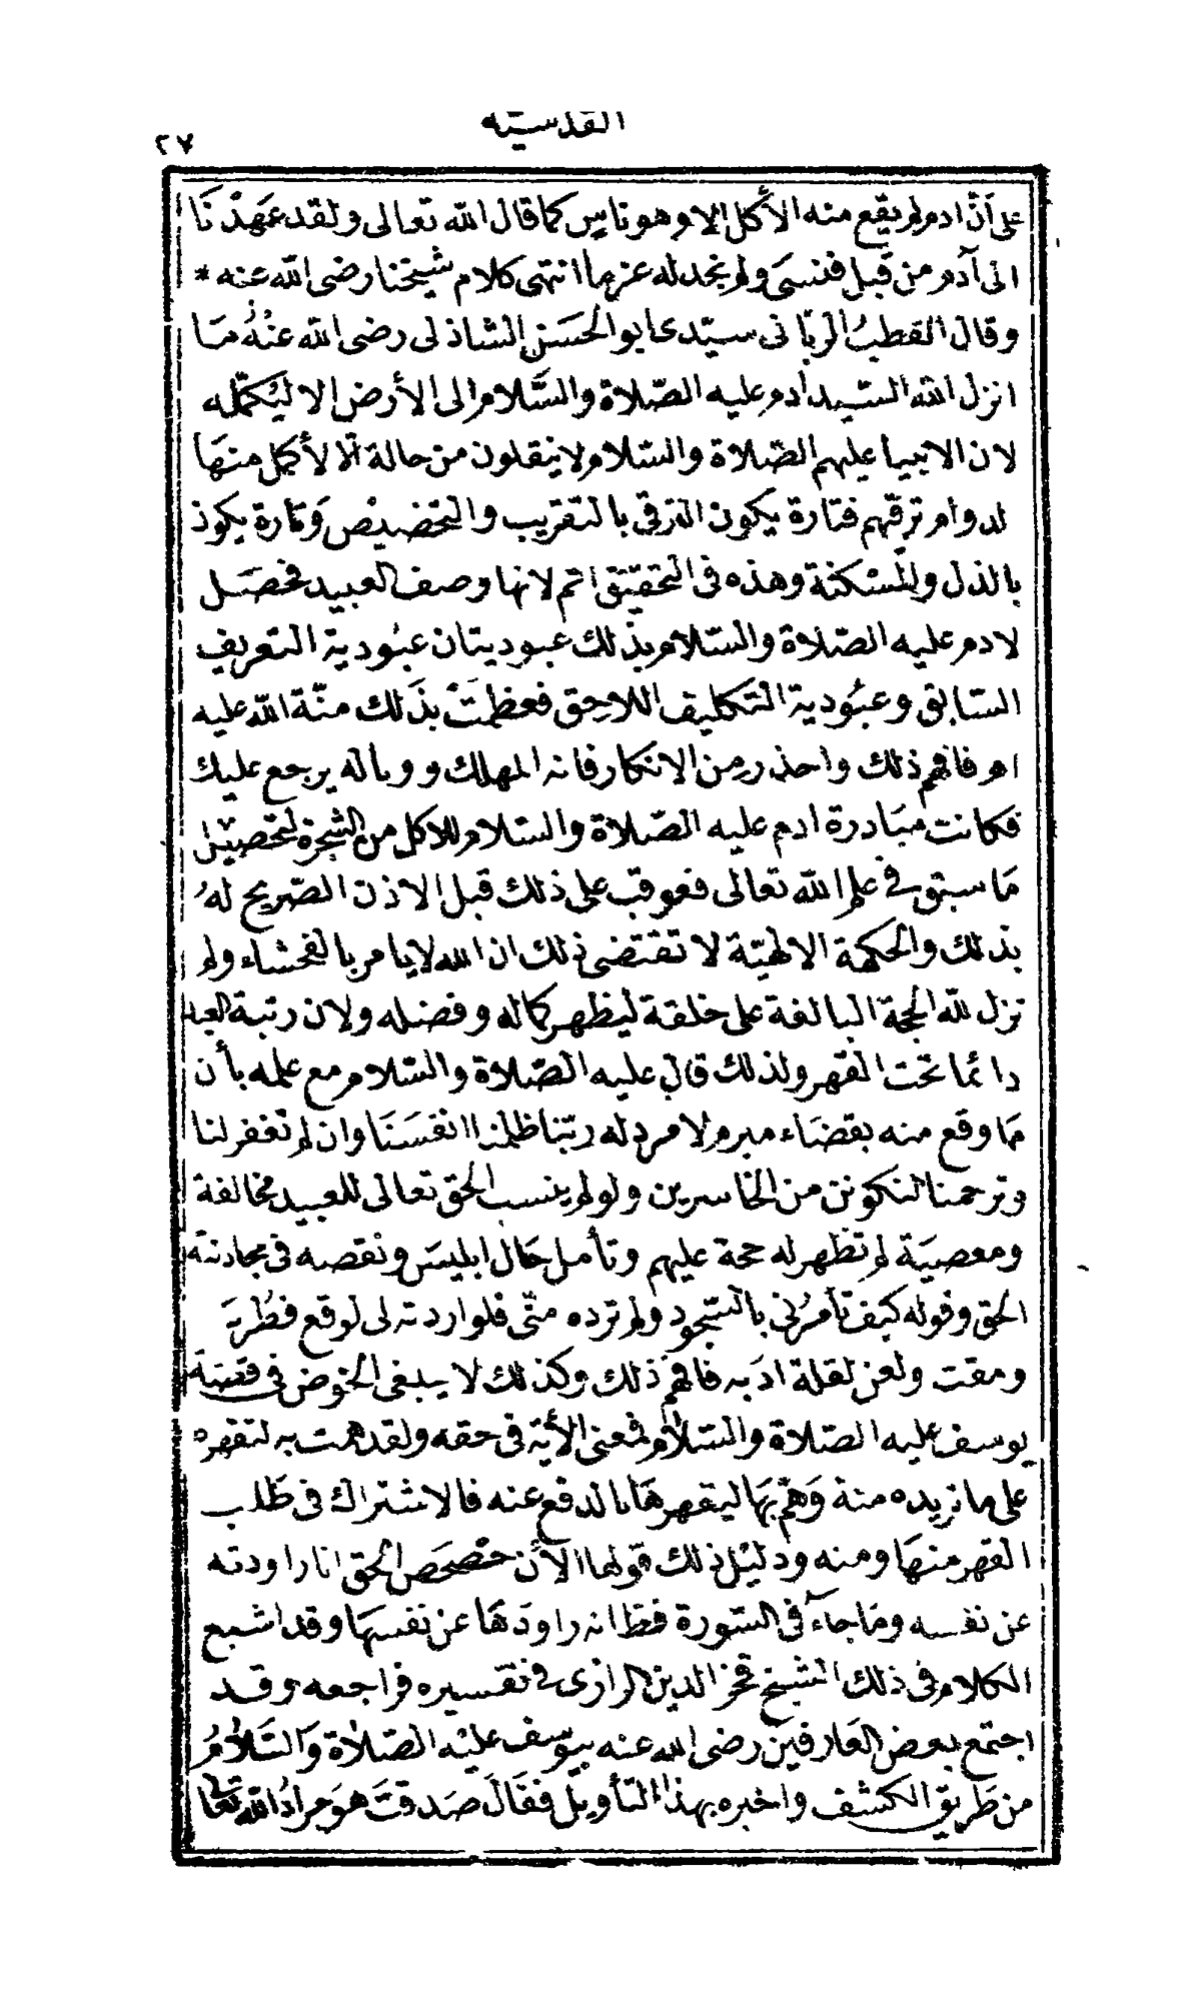 القدسيّه
٢٧
على أنّ ادم لم يقع منه الأكل إلا وهو ناسٍ كما قال الله تعالى ولقد عَهِدْنَا
الى آدم من قَبل فنسىَ ولم نجد له عزما انتهى كلام شيخنا رضى الله عنه *
وقال القطبُ الربّانى سيّدى ابو الحَسَن الشاذلى رضى الله عنْهُ مَا
انزل الله السّيد ادم عليه الصّلاة والسَّلام الى الأرض الا ليُكمّله
لان الانبيا عليهم الصّلاة والسّلام لا ينقلون من حالة الّا لأكمل منهَا
لدوام ترقّيهم فتارة يكون الترقى بالتقريب والتخضيْص وَتارة يكون
بالذل والمسْكنة وهذه فى التحقيق اتم لانها وصف العبيد فحصَل
لادم عليه الصّلاة والسّلام بذلك عبوديتان عبُودية التعريف
السّابق وعبُودية التكليف اللاحِق فعظمَتْ بذَلك منّة الله عليه
اهـ فافهم ذلك واحذر مِن الانكار فانه المهلك ووباله يرجع عليك
فكانت مبَادرة ادم عليه الصّلاة والسّلام للاكل من الشجرة لتحصيْل
مَا سبق فى علم الله تعالى فعوقب على ذلك قبل الاذن الصّريح لهُ
بذلك والحكمة الالهيّة لا تقتضى ذلك ان الله لا يامر بالفحشاء ولم
تزل لله الحجة البالغة على خلقة ليظهر كماله وفضله ولان رتبة العبد
دائما تحت القهر ولذلك قال عليه الصّلاة والسّلام مع علمه بأن
مَا وقع منه بقضَاء مبرم لا مرد له ربّنا ظلمنا انفسَنَا وان لم تغفر لنا
وترحمنا لنكونن من الخاسرين ولو لم ينسب الحق تعالى للعبيد مخالفة
ومعصيَة لم تظهر له حجة عليهم وتأمل حَال ابليسَ ونقصه فى مجادلته
الحق وقوله كيف تأمرُنى بالسّجود ولم ترده منّى فلو اردته لى لوقع فطُرِدَ
ومقت ولعن لقلة ادَبه فافهَم ذلك وكذلك لا ينبغى الخوض فى قصّة
يوسف عليه الصّلاة والسّلاٰم فمعنى الأية فى حقه ولقد همت به لتقهره
على ما تريده منه وَهَمّ بهَا ليقهرهَا بالدفع عنه فالاشتراك فى طَلب
القهر منهَا ومنه ودليْل ذلك قولها الأن حَصْحَصَ الحق انا راودته
عن نفسه ومَا جَاءَ فى السّورة قط انه راودَهَا عن نفسهَا وقد اشبع
الكلام فى ذلك الشيخ فخر الدين الرازى فى تفسيره فراجعه وقد
اجتمع بعض العَارفين رضى الله عنه بيوّسف عليْه الصّلاة وَالسَّلاٰمُ
من طَريق الكشف واخبره بهذا التأويل فقَالَ صَدقتَ هوَ مرادُ الله تعَالى